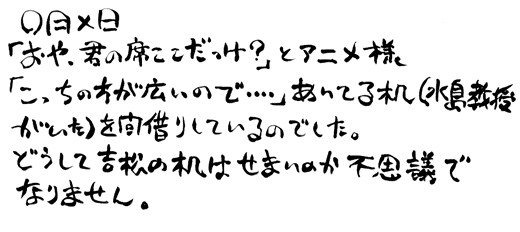 〇月×日
「おや、君の席ここだっけ？」とアニメ様。
「こっちの方が広いので‥‥」あいてる机(水島教授
がいた)を間借りしているのでした。
どうして吉松の机はせまいのか不思議で
なりません。